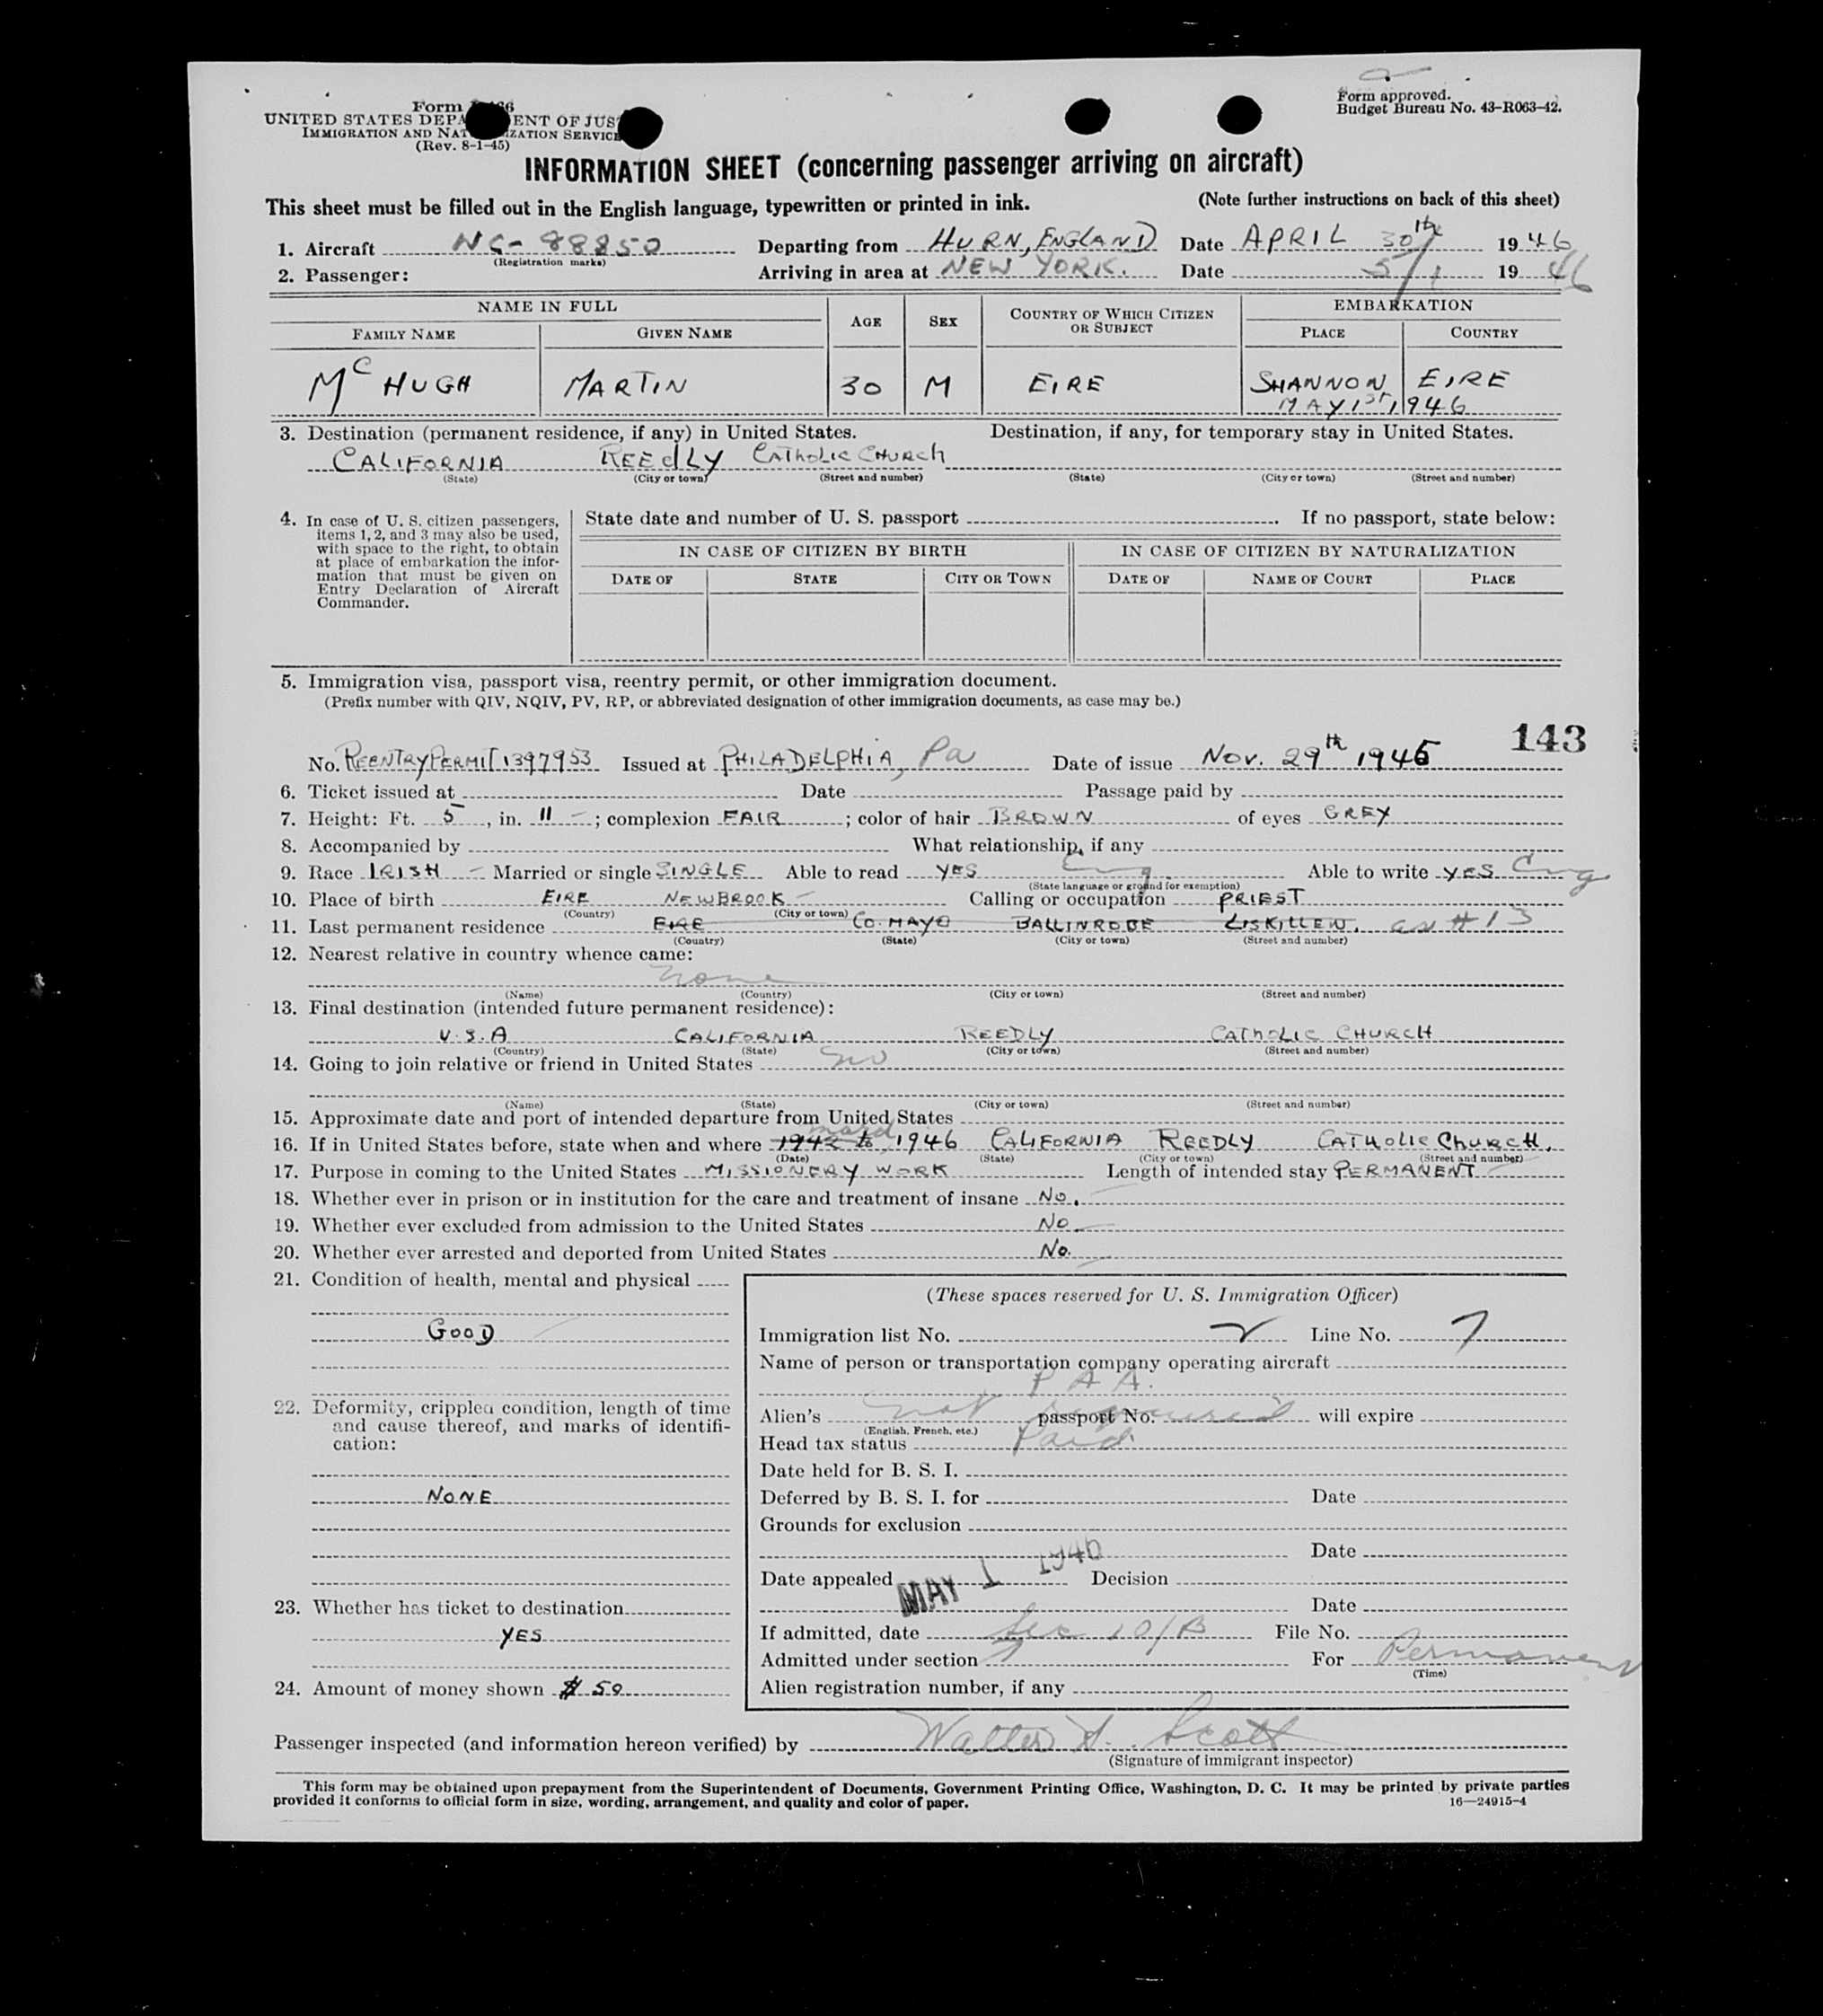 Form
UNITED STATES DEPA ENT OF JUS
IMMIGRATION AND NAT IZATION SERVICE
(Rev. 8-1-45)
Form approved.
Budget Bureau No. 43-R063-42.
INFORMATION SHEET (concerning passenger arriving on aircraft)
This sheet must be filled out in the English language, typewritten or printed in ink. (Note further instructions on back of this sheet)
1. Aircraft NC-88850 Departing from HURN, ENGLAND Date APRIL 30th 1946
(Registration marks)
2. Passenger: Arriving in area at NEW YORK. Date 5/1 1946
NAME IN FULL AGE SEX COUNTRY OF WHICH CITIZEN OR SUBJECT EMBARKATION
FAMILY NAME GIVEN NAME PLACE COUNTRY
McHUGH MARTIN 30 M EIRE SHANNON EIRE
MAY 1st, 1946
3. Destination (permanent residence, if any) in United States. Destination, if any, for temporary stay in United States.
CALIFORNIA REEDLY CATHOLIC CHURCH
(State) (City or town) (Street and number) (State) (City or town) (Street and number)
4. In case of U. S. citizen passengers, items 1, 2, and 3 may also be used, with space to the right, to obtain at place of embarkation the information that must be given on Entry Declaration of Aircraft Commander.
State date and number of U. S. passport . If no passport, state below:
IN CASE OF CITIZEN BY BIRTH IN CASE OF CITIZEN BY NATURALIZATION
DATE OF STATE CITY OR TOWN DATE OF NAME OF COURT PLACE
5. Immigration visa, passport visa, reentry permit, or other immigration document.
(Prefix number with QIV, NQIV, PV, RP, or abbreviated designation of other immigration documents, as case may be.)
143
No. REENTRY PERMIT 1397953 Issued at PHILADELPHIA, Pa Date of issue Nov. 29th 1945
6. Ticket issued at Date Passage paid by
7. Height: Ft. 5, in. 11 -; complexion FAIR; color of hair BROWN of eyes GREY
8. Accompanied by What relationship, if any
9. Race IRISH - Married or single SINGLE Able to read YES Eng Able to write YES Eng
(State language or ground for exemption)
10. Place of birth EIRE NEWBROOK - Calling or occupation PRIEST
(Country) (City or town)
11. Last permanent residence EIRE CO. MAYO BALLINROBE LISKILLEN. as # 13
(Country) (State) (City or town) (Street and number)
12. Nearest relative in country whence came:
none
(Name) (Country) (City or town) (Street and number)
13. Final destination (intended future permanent residence):
U.S.A CALIFORNIA REEDLY CATHOLIC CHURCH
(Country) (State) (City or town) (Street and number)
14. Going to join relative or friend in United States no
(Name) (State) (City or town) (Street and number)
15. Approximate date and port of intended departure from United States
16. If in United States before, state when and where 1946 CALIFORNIA REEDLY CATHOLIC CHURCH.
(Date) (State) (City or town) (Street and number)
17. Purpose in coming to the United States MISSIONERY WORK Length of intended stay PERMANENT
18. Whether ever in prison or in institution for the care and treatment of insane No.
19. Whether ever excluded from admission to the United States No
20. Whether ever arrested and deported from United States No.
21. Condition of health, mental and physical
GOOD
22. Deformity, crippled condition, length of time and cause thereof, and marks of identification:
NONE
23. Whether has ticket to destination
YES
24. Amount of money shown $ 50
(These spaces reserved for U. S. Immigration Officer)
Immigration list No. 2 Line No. 7
Name of person or transportation company operating aircraft
P A A.
Alien's not passport No. required will expire
(English, French, etc.)
Head tax status Paid
Date held for B. S. I.
Deferred by B. S. I. for Date
Grounds for exclusion
Date
Date appealed Decision
MAY 1 1946
Date
If admitted, date Sec 10/B File No.
Admitted under section For Permanent
(Time)
Alien registration number, if any
Passenger inspected (and information hereon verified) by Walter S. Scott
(Signature of immigrant inspector)
This form may be obtained upon prepayment from the Superintendent of Documents, Government Printing Office, Washington, D. C. It may be printed by private parties
provided it conforms to official form in size, wording, arrangement, and quality and color of paper. 16—24915-4